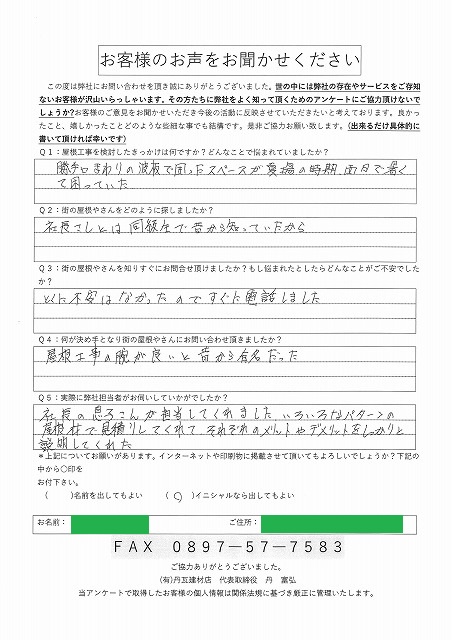 お客様のお声をお聞かせください
この度は弊社にお問い合わせを頂き誠にありがとうございました。世の中には弊社の存在やサービスをご存知
ないお客様が沢山いらっしゃいます。その方たちに弊社をよく知って頂くためのアンケートにご協力頂けないで
しょうか?お客様のご意見をお聞かせいただき今後の活動に反映させていただきたいと考えております。良かっ
たこと、嬉しかったことどのような些細な事でも結構です。是非ご協力お願い致します。(出来るだけ具体的に
書いて頂ければ幸いです)
Q1:屋根工事を検討したきっかけは何ですか?どんなことで悩まれていましたか?
勝手口まわりの波板で囲ったスペースが夏場の時期、西日で暑く
て困っていた
Q2:街の屋根やさんをどのように探しましたか?
社長さんとは同級生で昔から知っていたから
Q3:街の屋根やさんを知りすぐにお問合せ頂けましたか?もし悩まれたとしたらどんなことがご不安でした
か?
とくに不安はなかったのですぐに電話しました
Q4:何が決め手となり街の屋根やさんにお問い合わせ頂きましたか?
屋根工事の腕が良いと昔から有名だった
Q5:実際に弊社担当者がお伺いしていかがでしたか?
社長の息子さんが担当してくれました いろいろなパターンの
屋根材で見積りしてくれて それぞれのメリットやデメリットをしっかりと
説明してくれた
*上記についてお願いがあります。インターネットや印刷物に掲載させて頂いてもよろしいでしょうか?下記の
中から〇印を
お付下さい。
( )名前を出してもよい ( ○ )イニシャルなら出してもよい
お名前: ご住所:
FAX 0897-57-7583
ご協力ありがとうございました。
(有)丹瓦建材店 代表取締役 丹 富弘
当アンケートで取得したお客様の個人情報は関係法規に基づき厳正に管理いたします。